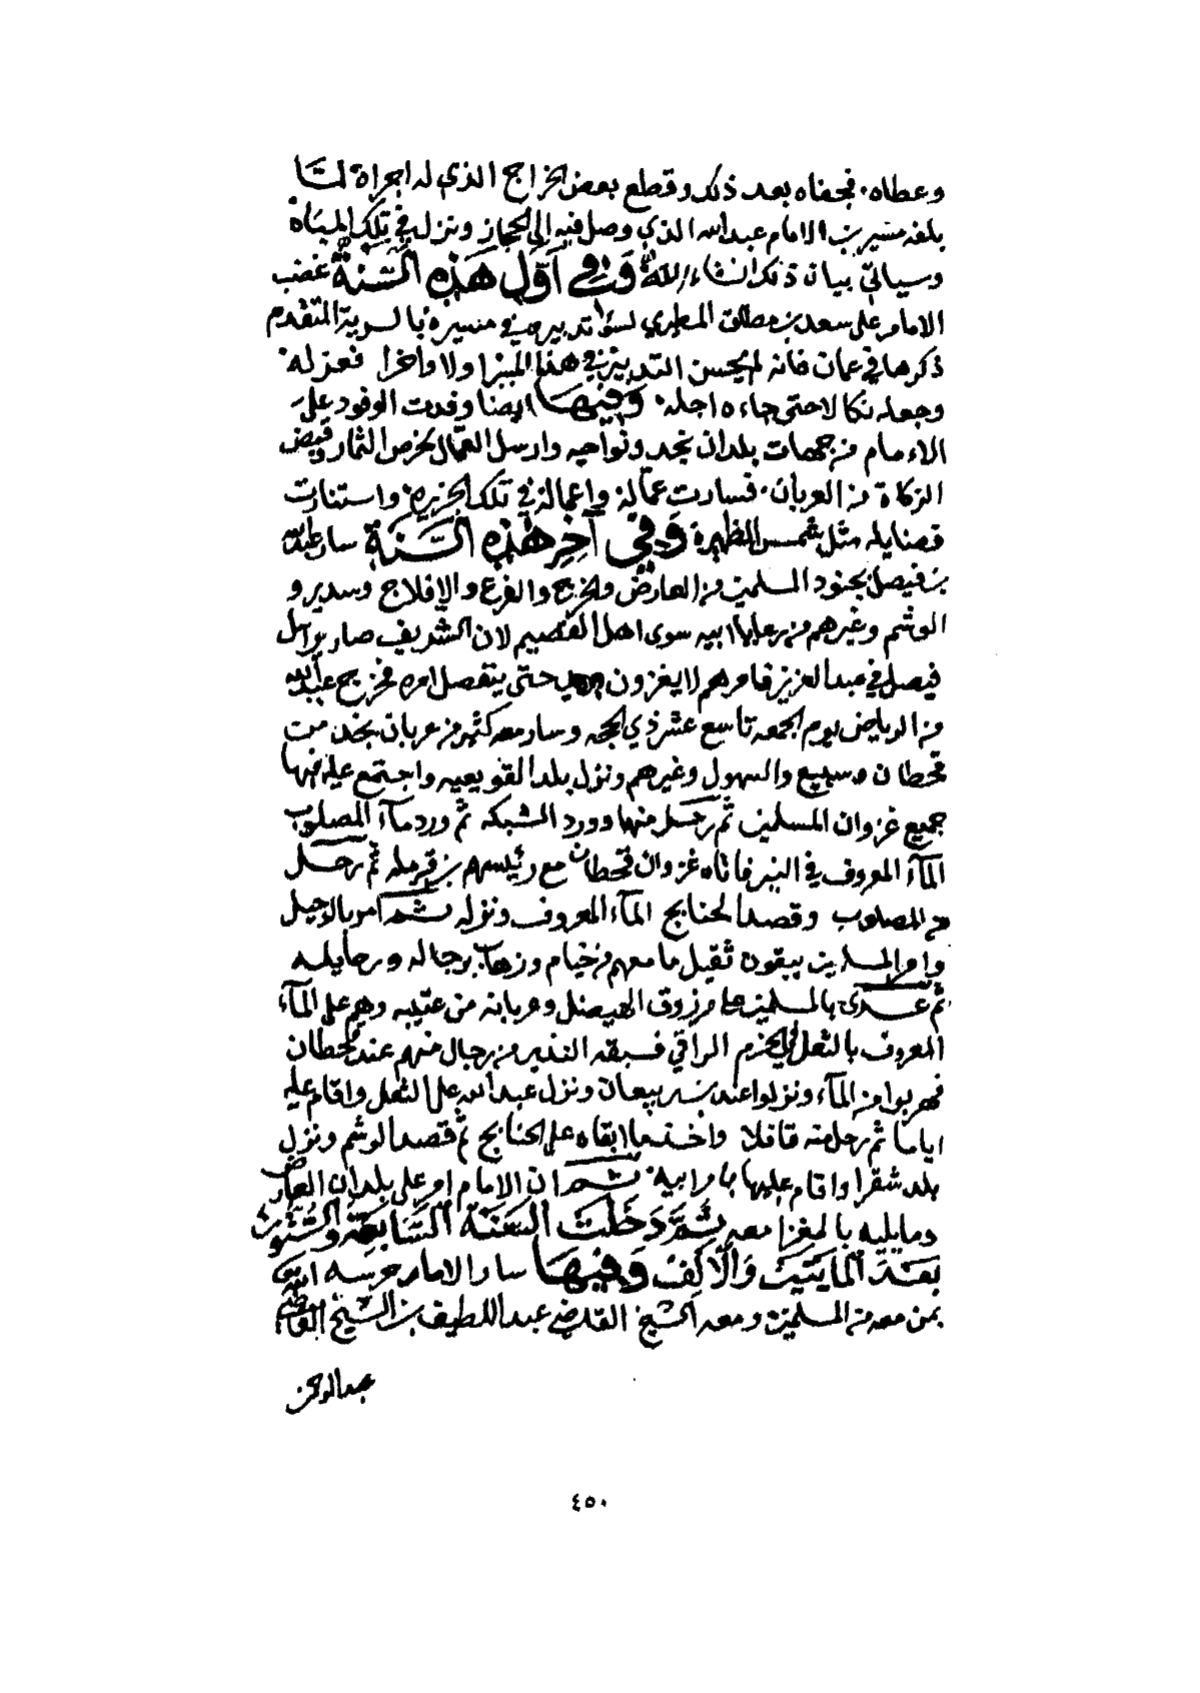 وعطاه. فجفاه بعد ذلك وقطع بعض الخراج الذي له اجراه لمّا
بلغه مسير بن الامام عبدالله الذي وصل فيه الى الحجاز ونزل في تلك المياه
وسياتي بيان ذلك انشاء الله وَفي أوّل هَذه السَّنَة غضب
الامام على سعد بن مطلق المطيري لسؤ تدبيره في مسيره بالسرية المتقدم
ذكرها في عمان فانه لم يحسن التدبير في هذا المغزا ولا واخرا فعزله
وجعله نكالا حتى جاءه اجله. وَفيهَا ايضا وفدت الوفود على
الامام من جهات بلدان نجد ونواحيه وارسل العمال لخرص الثمار وقبض
الزكاة من العربان. فسارت عمّاله واعماله في تلك الجزيره واستنارت
فضايله مثل شمس الظهيرة وَفي آخِر هٰذه السَّنَة سار عبدالله
بن فيصل بجنود المسلمين من العارض والخرج والفرع والافلاج وسدير و
الوشم وغيرهم من رعايا ابيه سوى اهل القصيم لان الشريف صار يراسل
فيصل في عبدالعزيز فامرهم لا يغزون حتى ينفصل امره فخرج عبدالله
من الرياض يوم الجمعه تاسع عشر ذي الحجه وسار معه كثير من عربان نجد من
قحطان وسبيع والسهول وغيرهم ونزل بلد القويعيه واجتمع عليه فيها
جميع غزوان المسلمين ثم رحل منها وورد الشبكه ثم ورد مآء المصلوب
المآء المعروف في النير فاتاه غزوان قحطان مع رئيسهم بن قرمله ثم رحل
من المصلوب وقصد الحنابج المآء المعروف ونزله ثم امر بالرحيل
وامر المسلمين يبقون ثقيل ما معهم من خيام وزهاب برجاله ورحايله
ثم عدى بالمسلمين على مرزوق الهيضل وعربانه من عتيبه وهم على المآء
المعروف بالثعل في الحزم الراقي فسبقه النذير من رجال منهم عند قحطان
فهربوا من المآء ونزلوا عند بن ربيعان ونزل عبدالله على الثعل واقام عليه
اياما ثم رحل منه قافلا واخذ ما ابقاه على الحنابج ثم قصد الوشم ونزل
بلد شقرا واقام عليها بامر ابيه. ثم ان الامام امر على بلدان العارض
ومايليه بالمغزا معه ثُمَّ دَخَلَت السَّنَة السَّابعَة والسّتّون
بَعدَ المايَتَين وَالألف وَفيهَا سار الامام حرسه الله
بمن معه من المسلمين ومعه الشيخ القاضي عبداللطيف بن الشيخ القاضي
عبدالرحمن
٤٥٠